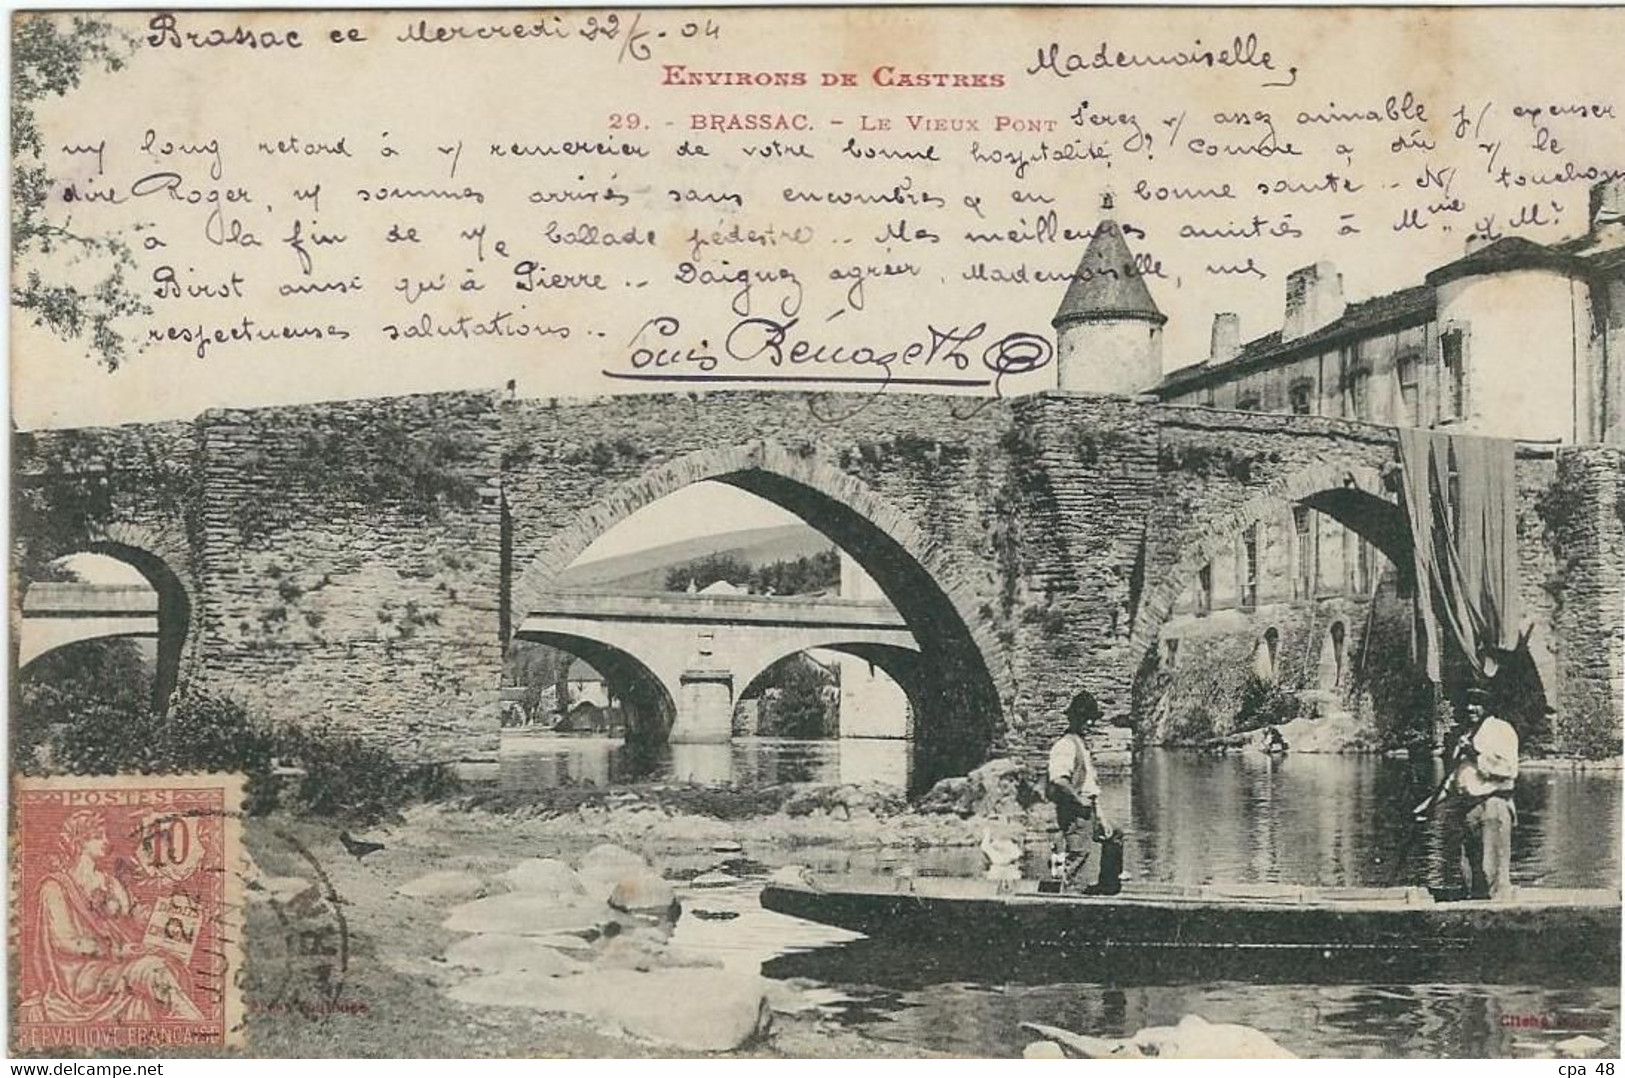 Brassac ce Mercredi 22/6-04
Mademoiselle,
ENVIRONS DE CASTRES
29. - BRASSAC. - LE VIEUX PONT
Serez v/ assez aimable p/ excuser
long retard à v/ remercier de votre bonne hospitalité? Comme a dû v/ le
dire Roger, n/ sommes arrivés sans encombres & en bonne santé.. N/ touchons
à la fin de ballade pédestre.. Mes meilleures amitiés à Mme & Mr
Birot ainsi qu'à Pierre.. Daignez agréer, Mademoiselle, mes
respectueuses salutations..
Louis Bénazeth
POSTES
10
22
JUIN
REPVBLIQVE FRANÇAISE
Cliché
cpa 48